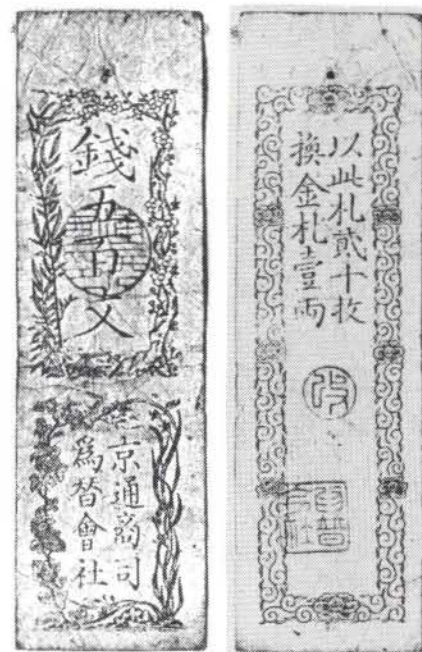 錢五百文
京通商司
為替會社
以此札貳十枚
換金札壹兩